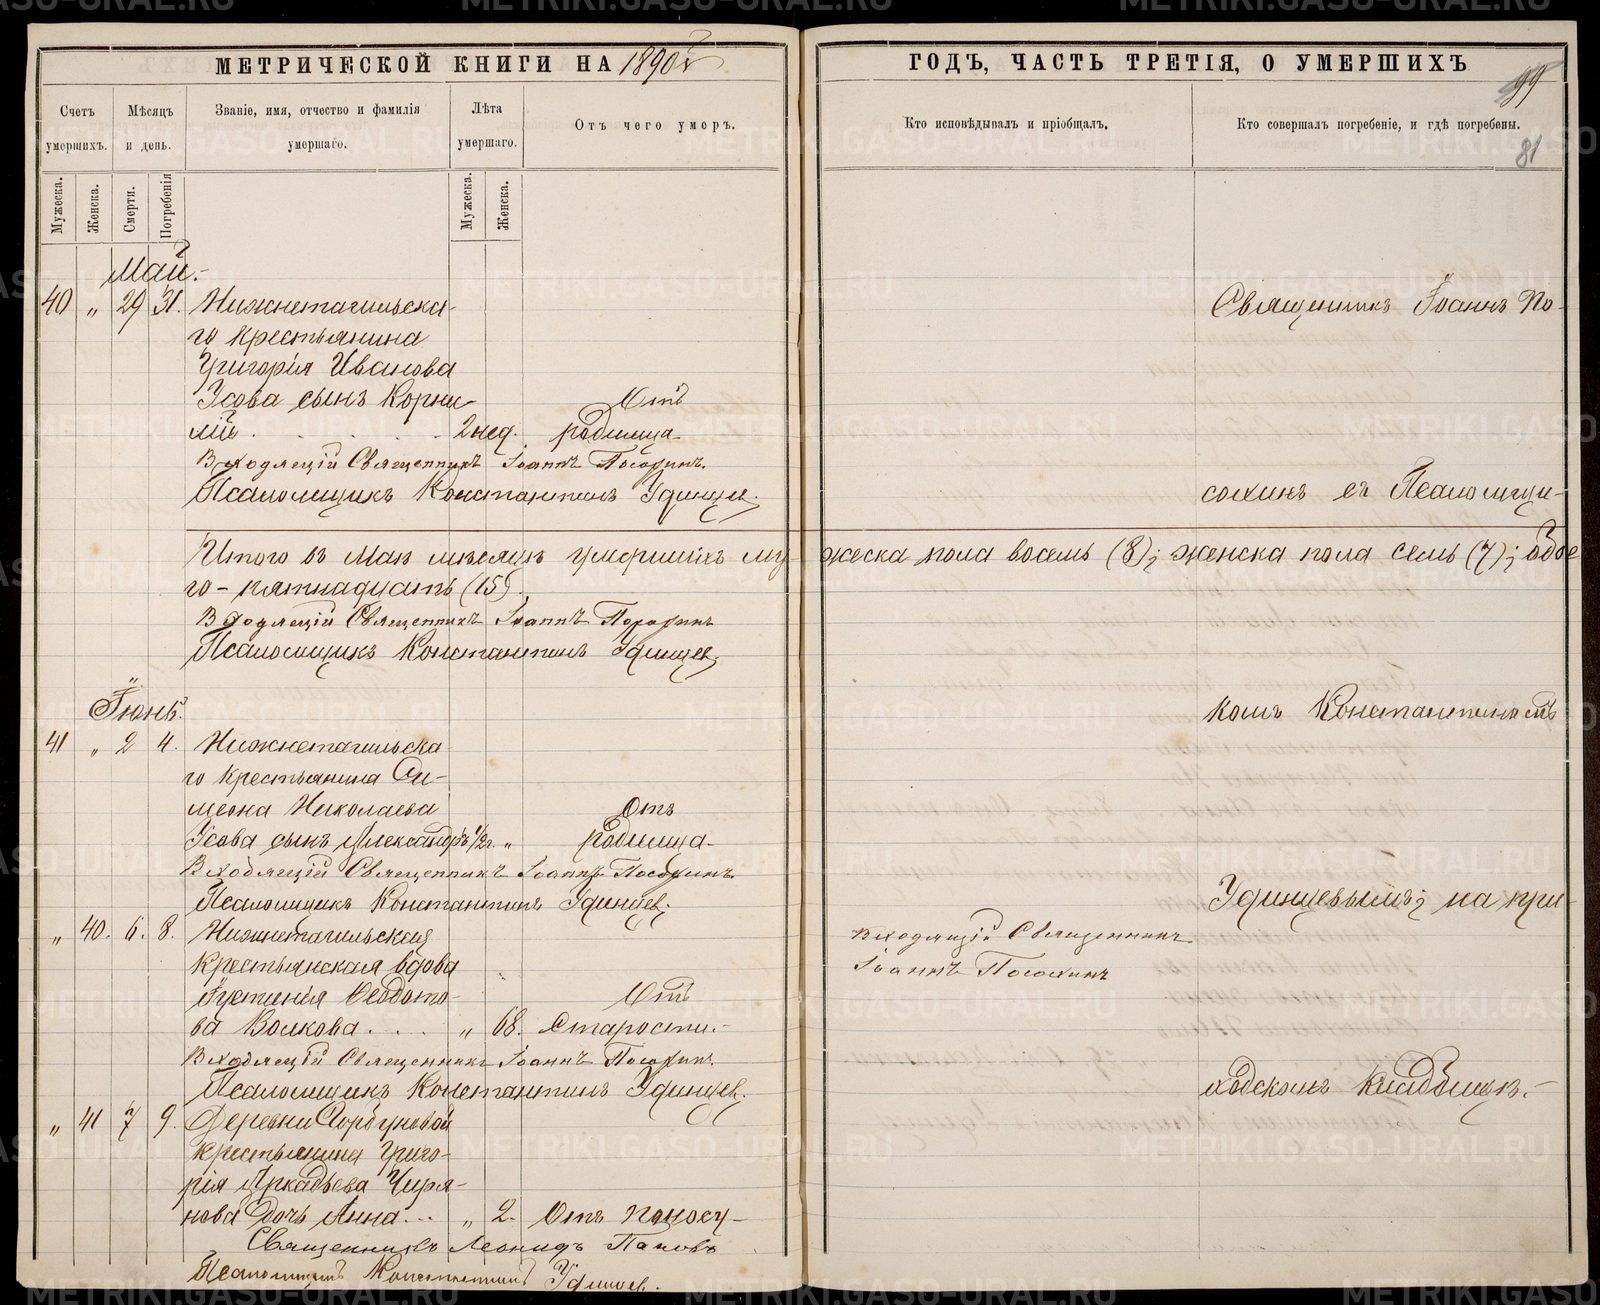 МЕТРИЧЕСКОЙ КНИГИ НА 1890 г
Счетъ умершихъ.
Мѣсяцъ и день.
Званіе, имя, отчество и фамилія умершаго.
Лѣта умершаго.
Отъ чего умеръ.
Мужеска.
Женска.
Смерти.
Погребенія
Мужеска.
Женска.
Май.
40 " 29 31. Нижнетагильска-
го крестьянина
Григорія Иванова
Усова сынъ Корни- Отъ
лій . . . . . 2 нед. родимца
Входящій Священникъ Іоаннъ Посохинъ.
Псаломщикъ Константинъ Удинцев.
Итого въ Маѣ мѣсяцѣ умершихъ му-
го - пятнадцать (15).
Входящій Священникъ Іоаннъ Посохинъ
Псаломщикъ Константинъ Удинцев.
Іюнь.
41 " 2 4. Нижнетагильска
го крестьянина Си-
меона Николаева Отъ
Усова сынъ Александръ 1/2 г. " родимца-
Входящій Священникъ Іоаннъ Посохинъ.
Псаломщикъ Константинъ Удинцев.
" 40. 6. 8. Нижнетагильская
крестьянская вдова
Іустинія Ѳеодото- Отъ
ва Волкова . . . . " 68. Старости.-
Входящій Священникъ Іоаннъ Посохинъ.
Псаломщикъ Константинъ Удинцев.
" 41 7 9. Деревни Горбуновой
крестьянина Григо-
рія Аркадьева Чиря-
нова дочь Анна ... " 2. Отъ поносу-
Священникъ Леонидъ Поповъ
Псаломщикъ Константинъ Удинцев.
ГОДЪ, ЧАСТЬ ТРЕТІЯ, О УМЕРШИХЪ
99
Кто исповѣдывалъ и пріобщалъ.
Кто совершалъ погребеніе, и гдѣ погребены.
81
Священникъ Іоаннъ По-
сохинъ съ Псаломщи-
жеска пола восемь (8); женска пола семь (7); обое
комъ Константиномъ
Удинцевымъ; на при-
Входящій Священникъ
Іоаннъ Посохинъ
ходскомъ кладбищѣ.-
METRIKI.GASO-URAL.RU